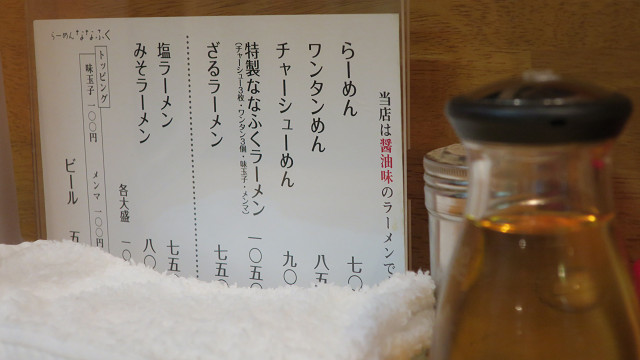 当店は醤油味のラーメンで
らーめん 七〇
ワンタンめん 八五
チャーシューめん 九〇
特製ななふくラーメン 一〇五〇
(チャーシュー3枚・ワンタン3個・味玉子・メンマ)
ざるラーメン 七五
塩ラーメン 七五
みそラーメン 八〇
各大盛 一〇
トッピング
味玉子 一〇〇円 メンマ 一〇〇円
ビール 五
らーめん ななふく